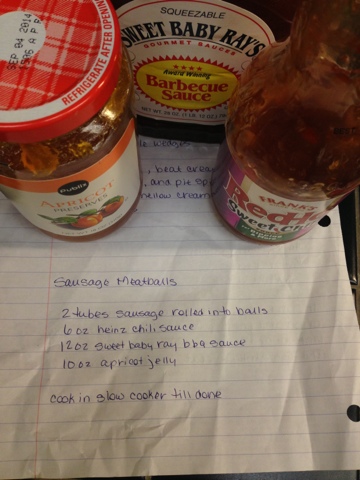 SEP 04 2014
REFRIGERATE AFTER OPENING
SQUEEZABLE
SWEET BABY RAY'S
GOURMET SAUCES
Award Winning
Barbecue
Sauce
Publix
APRICOT
PRESERVES
FRANK'S
RedHot
Sweet Chili
wedges
, beat cream
, and pie
mellow cream
Sausage Meatballs
2 tubes sausage rolled into balls
6 oz heinz chili sauce
12 oz sweet baby ray bbq sauce
10 oz apricot jelly
cook in slow cooker till done